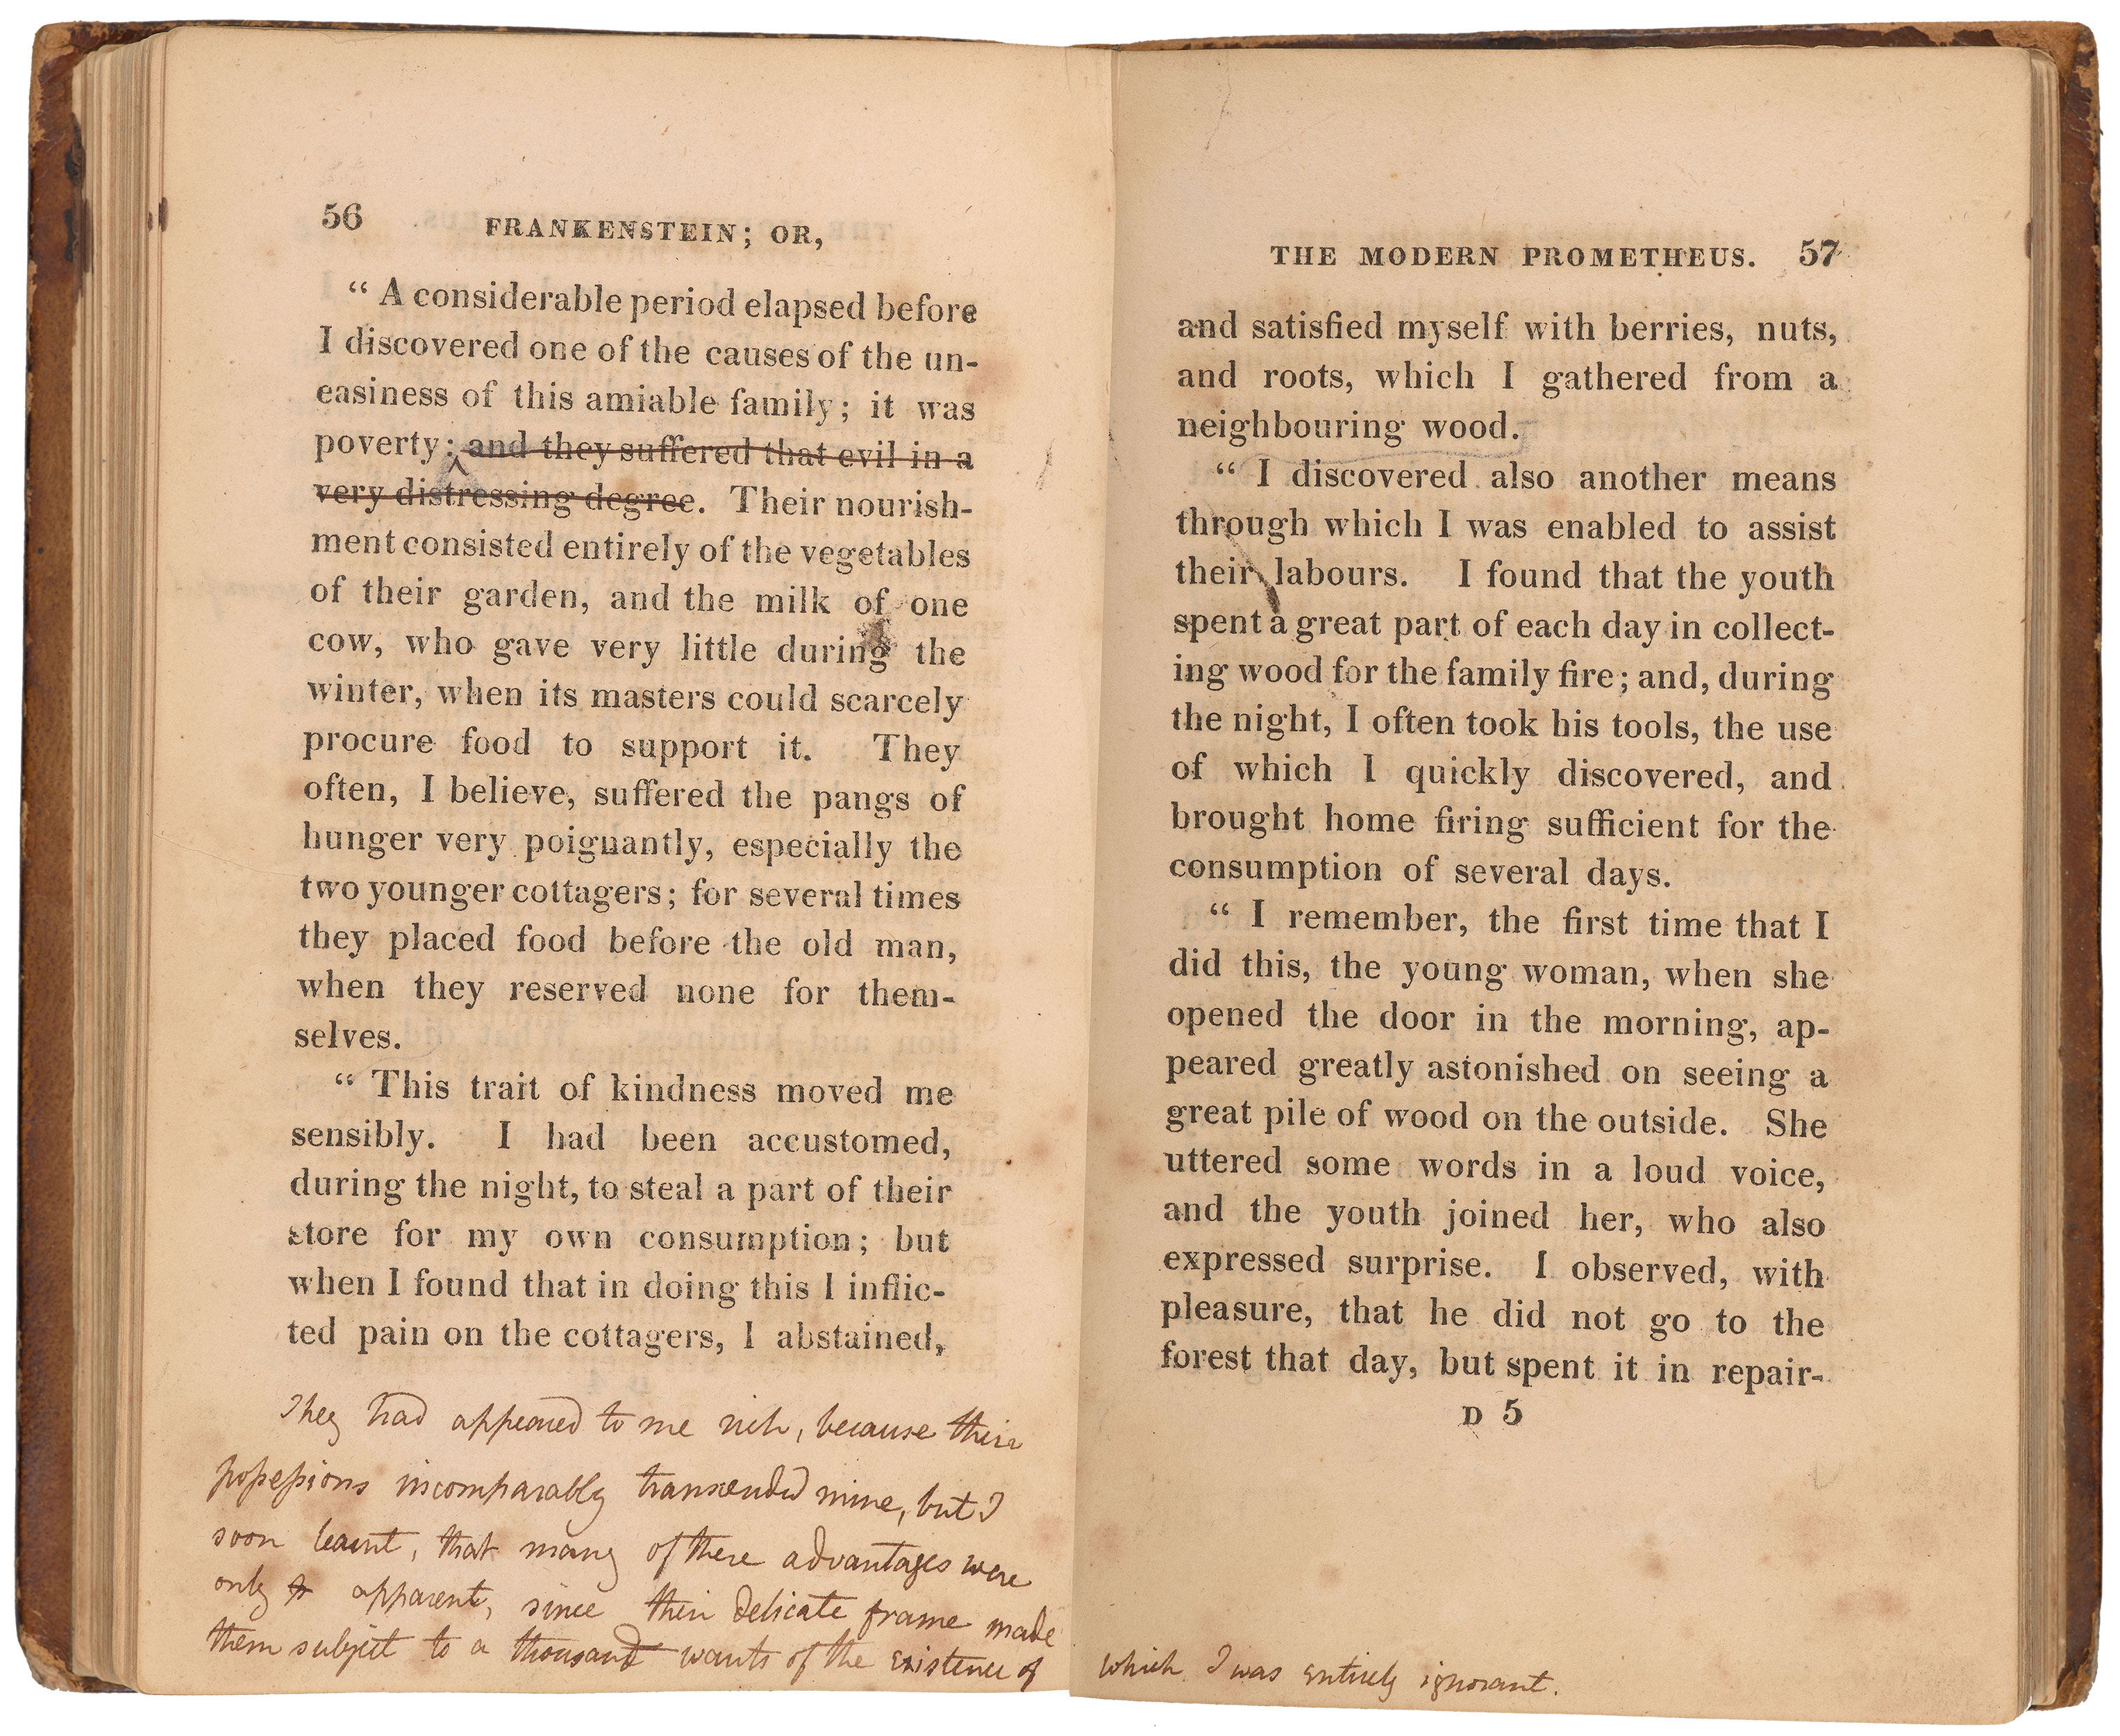 56 FRANKENSTEIN; OR,
“ A considerable period elapsed before
I discovered one of the causes of the un-
easiness of this amiable family; it was
poverty: and they suffered that evil in a
very distressing degree. Their nourish-
ment consisted entirely of the vegetables
of their garden, and the milk of one
cow, who gave very little during the
winter, when its masters could scarcely
procure food to support it. They
often, I believe, suffered the pangs of
hunger very poignantly, especially the
two younger cottagers; for several times
they placed food before the old man,
when they reserved none for them-
selves.
“ This trait of kindness moved me
sensibly. I had been accustomed,
during the night, to steal a part of their
store for my own consumption; but
when I found that in doing this I inflic-
ted pain on the cottagers, I abstained,
They had appeared to me rich, because their
possessions incomparably transcended mine, but I
soon learnt, that many of these advantages were
only apparent, since their delicate frame made
them subject to a thousand wants of the existence of
THE MODERN PROMETHEUS. 57
and satisfied myself with berries, nuts,
and roots, which I gathered from a
neighbouring wood.
“ I discovered also another means
through which I was enabled to assist
their labours. I found that the youth
spent a great part of each day in collect-
ing wood for the family fire; and, during
the night, I often took his tools, the use
of which I quickly discovered, and
brought home firing sufficient for the
consumption of several days.
“ I remember, the first time that I
did this, the young woman, when she
opened the door in the morning, ap-
peared greatly astonished on seeing a
great pile of wood on the outside. She
uttered some words in a loud voice,
and the youth joined her, who also
expressed surprise. I observed, with
pleasure, that he did not go to the
forest that day, but spent it in repair-
D 5
which I was entirely ignorant.